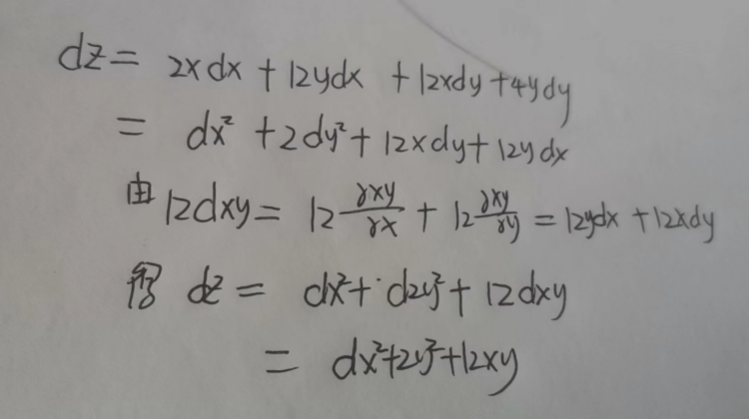 dz = 2xdx + 12ydx + 12xdy + 4ydy
= dx² + 2dy² + 12xdy + 12ydx
由 12dxy = 12 ∂xy/∂x + 12 ∂xy/∂y = 12ydx + 12xdy
dz = dx² + d2y² + 12dxy
= dx²+2y²+12xy